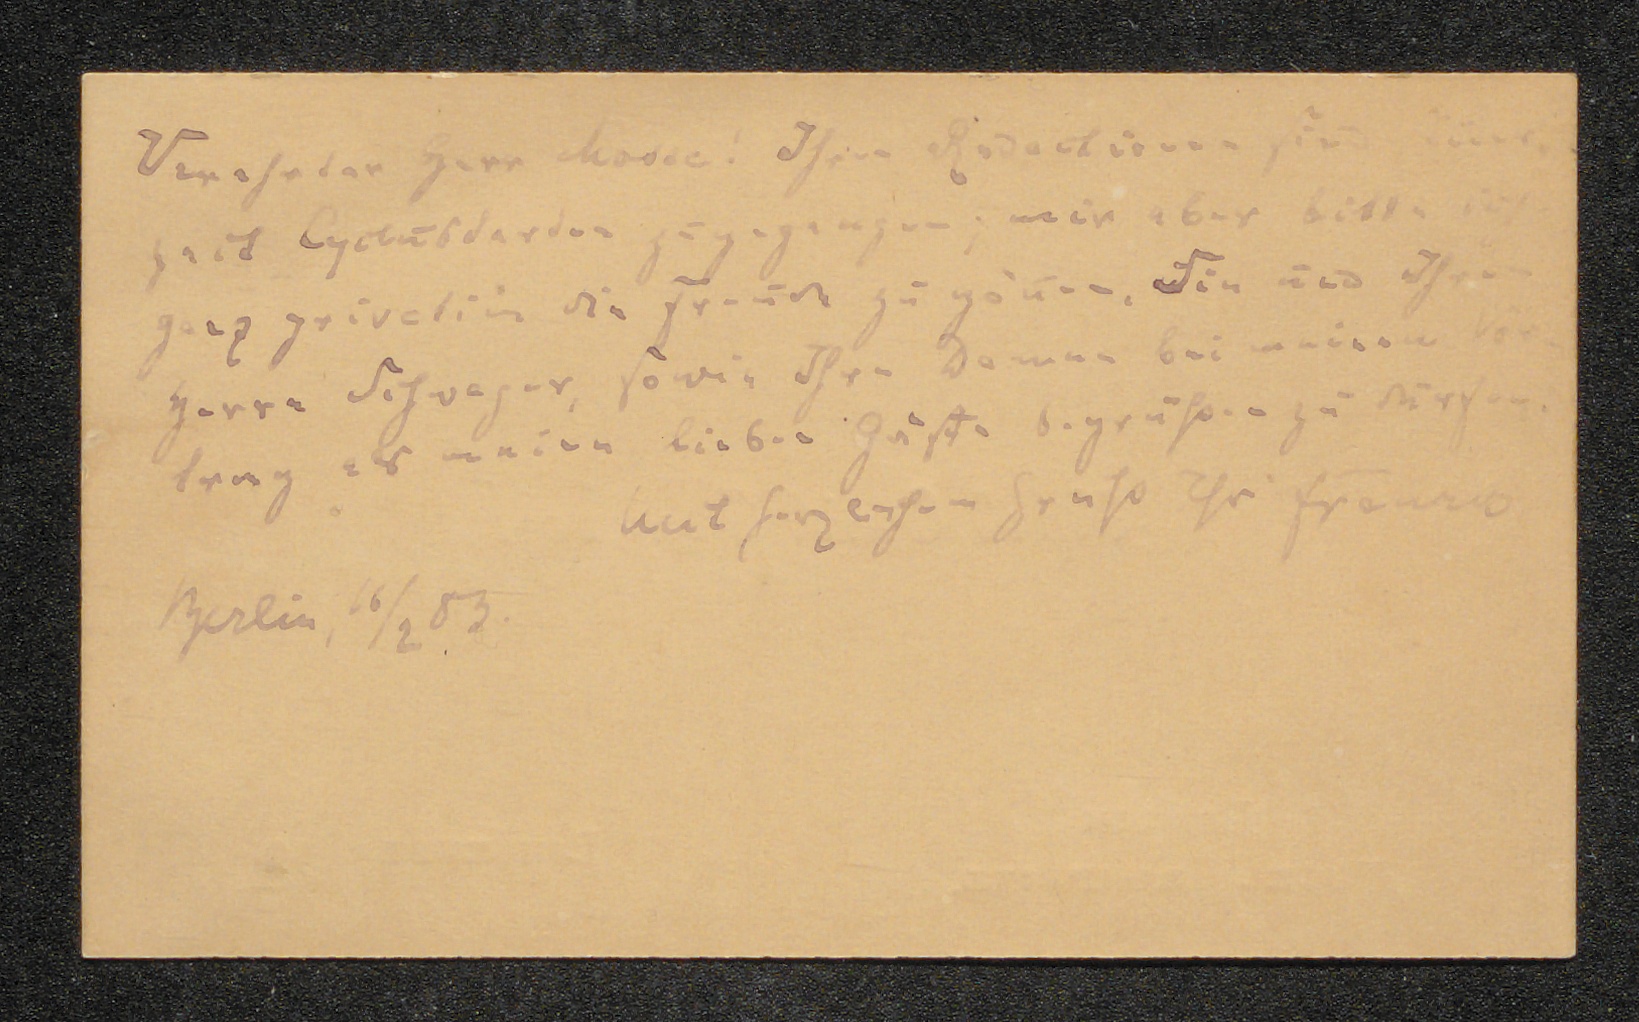 Verehrter Herr Mosse! Ihren Redactionen sind
zeit Cycluskarten zugegangen; mir aber bitte ich
ganz privatim die Freude zu gönnen, Sie und Ihren
Herrn Schwager, sowie Ihre Damen bei meinem Vor-
trag als meine lieben Gäste begrüßen zu dürfen.
Mit herzlichem Gruß Ihr
Berlin, 16/2 83.